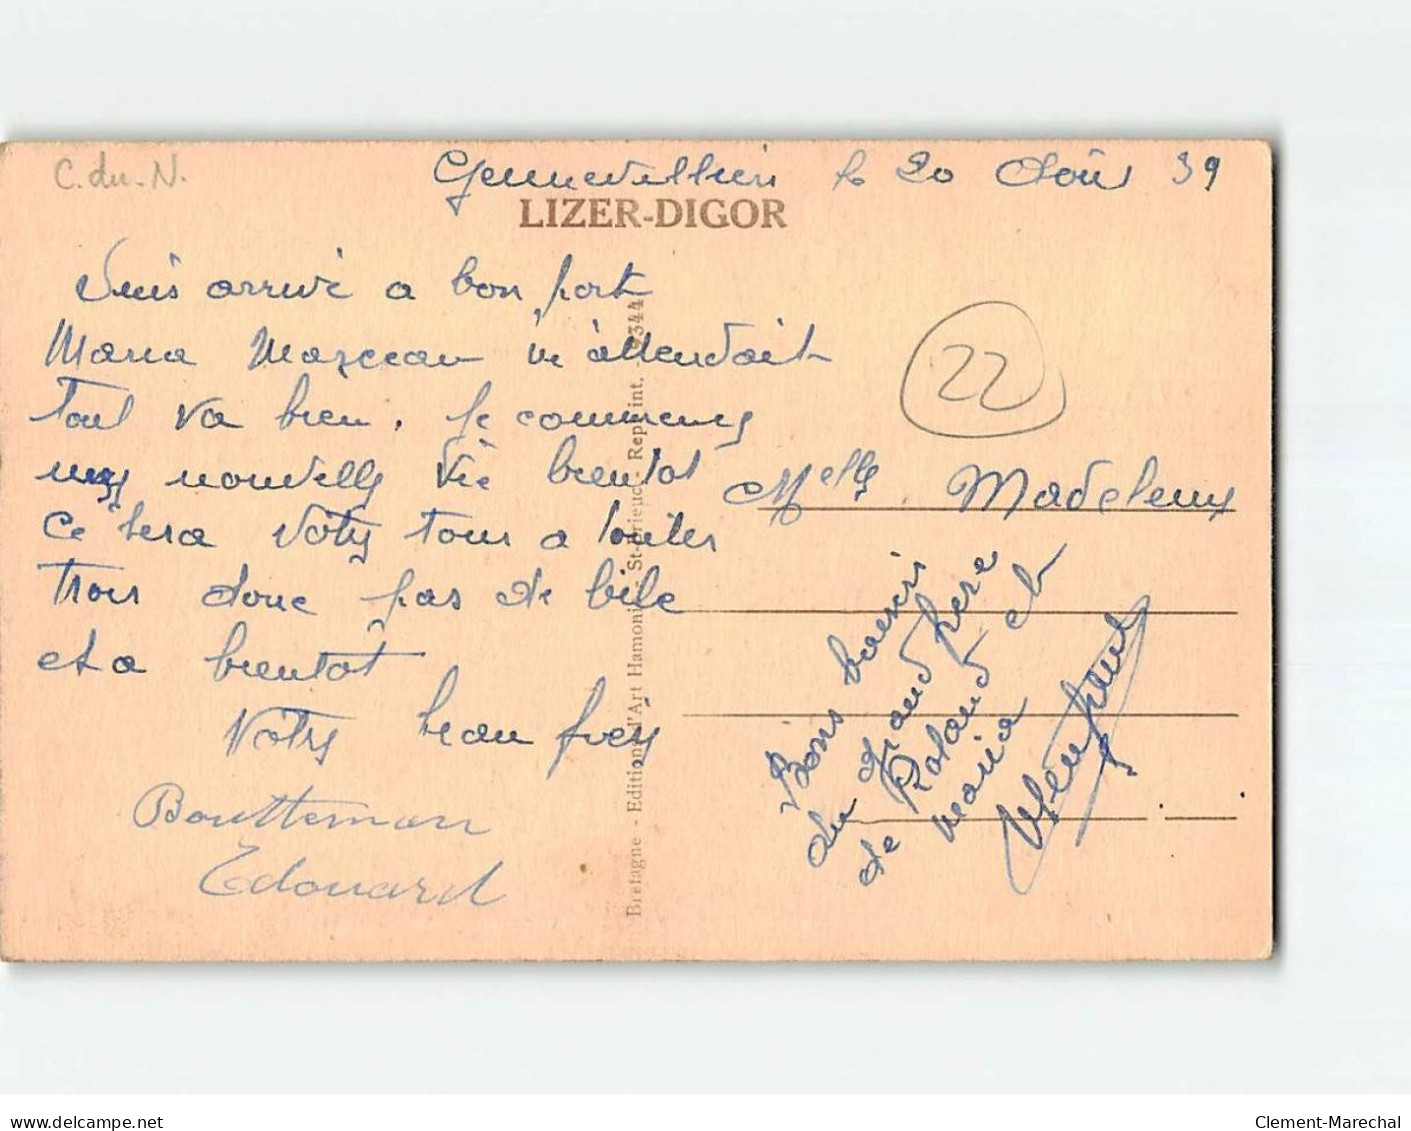 C. du. N.
Gennevilliers le 20 Août 39
LIZER-DIGOR
Suis arrivé a bon port
Maria Marceau m'attendait
tout va bien. Je commence
nouvelle vie bientot
ce sera votre tour a toutes
trois donc pas de bile
et a bientot
Votre beau frere
Boutteman
Edouard
Bretagne - Editions d'Art Hamonic - St-Brieuc - Rep. int. - 9344
22
Melle Madeleine
Bons baisers
du grand pere
de Roland et
Maria
Clement-Marechal
www.delcampe.net